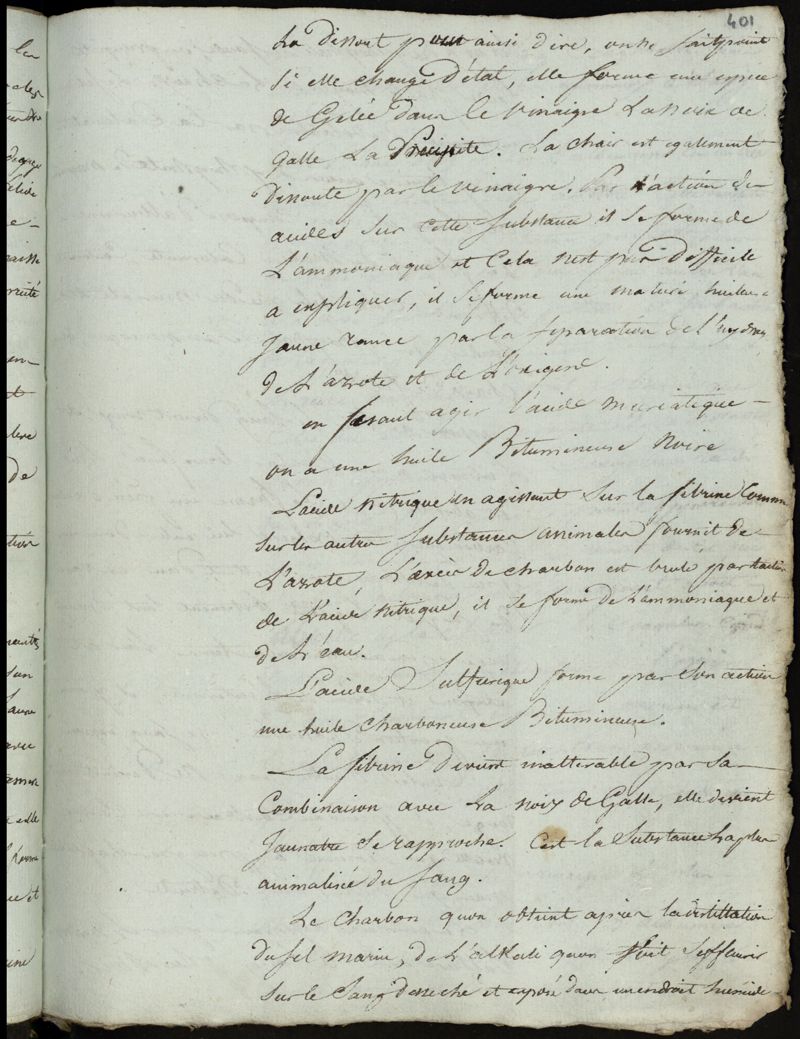 401
La dissout pour ainsi dire, on ne sait point
si elle change d'état, elle forme une espèce
de Gelée dans le vinaigre La noix de
Galle La Precipite. La chair est egalement
Dissoute par le vinaigre. Par l'action des
acides sur cette substance il se forme de
L'ammoniaque et Cela n'est pas difficile
a expliquer, il se forme une matiere huileuse
jaune rance par la separation de l'hydrog
de L'azote et de L'oxigene.
en fesant agir l'acide muriatique
on a une huile Bitumineuse Noire
L'acide Nitrique en agissant sur la fibrine Comme
sur les autres substances animales fournit de
L'azote, L'excès de charbon est brulé par l'action
de L'acide Nitrique, il se forme de L'ammoniaque et
de L'eau.
L'acide Sulfurique forme par son action
une huile charboneuse Bitumineuse.
La fibrine Devient inalterable par sa
Combinaison avec La noix de Galle, elle devient
jaunatre se rapproche. C'est la Substance La plus
animalisée du sang.
Le Charbon qu'on obtient apres la distillation
du sel marin, de L'alkali qu'on voit s'effleurir
sur le Sang desseché et exposé dans un endroit humide